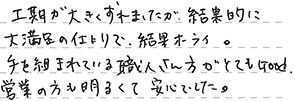 工期が大きくずれましたが、結果的に
大満足の仕上りで、結果オーライ。
手を組まれている職人さん方がとてもGood.
営業の方も明るくて安心でした。